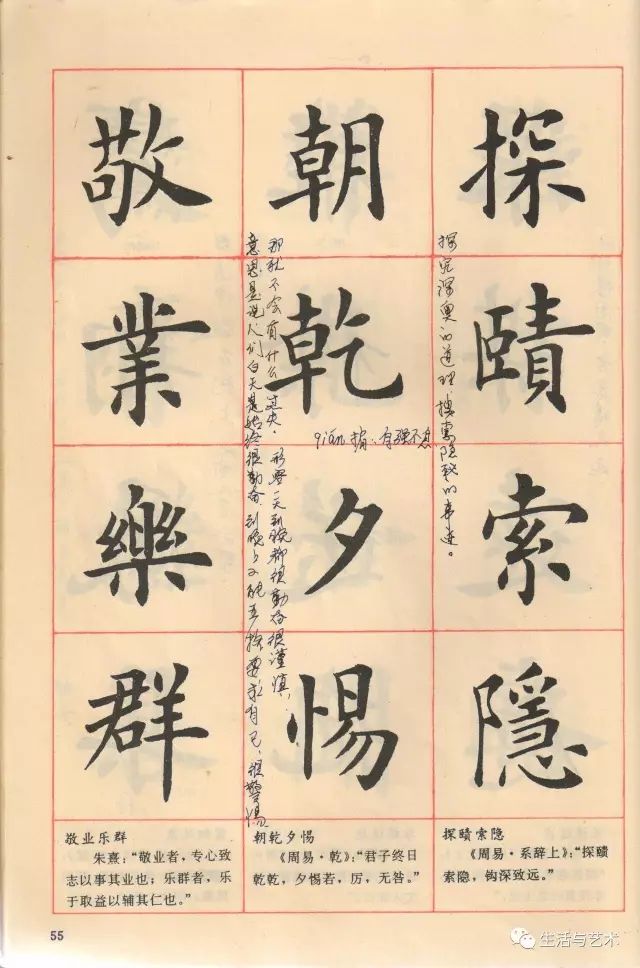 探賾索隱
朝乾夕惕
敬業樂群
探究深奥的道理搜索隐秘的事迹。
qián 指：自强不息
那就不会有什么过失。形容一天到晚都很勤奋很谨慎。
意思是说人们白天是始终很勤奋，到晚上又能
要求自己，很警惕
敬业乐群
朱熹：“敬业者，专心致
志以事其业也；乐群者，乐
于取益以辅其仁也。”
朝乾夕惕
《周易·乾》：“君子终日
乾乾，夕惕若，厉，无咎。”
探赜索隐
《周易·系辞上》：“探赜
索隐，钩深致远。”
55
生活与艺术